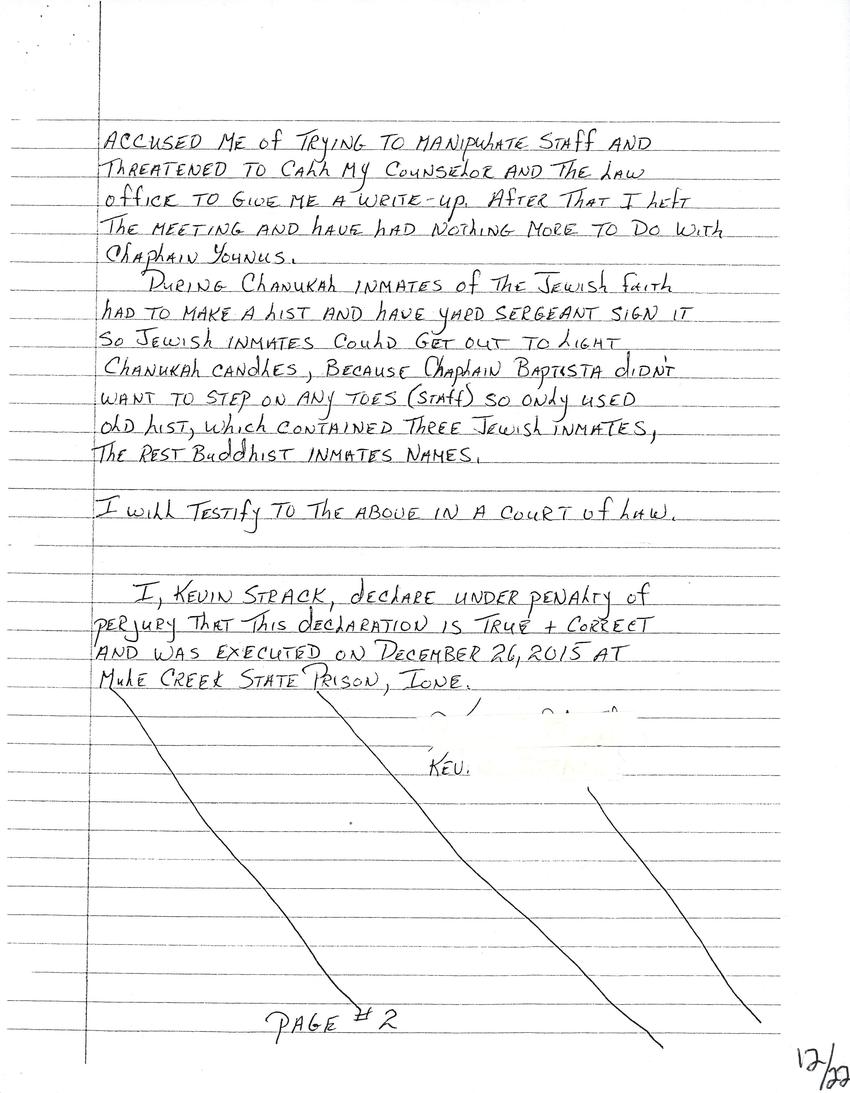 ACCUSED ME of TRyING TO MANIPULATE STAff AND
THREATENED TO CALL My COUNSELOR AND THE LAW
OffICE TO GIVE ME A WRITE-up. AfTER THAT I LEfT
THE MEETING AND hAVE hAD NOThING MORE TO DO WITh
ChApLAIN YOUNUS.
DURING CHANUKAh INMATES of THE JEWISh fAITh
hAD TO MAKE A LIST AND hAVE yARD SERGEANT SIGN IT
SO JEWISh INMATES COULD GET OUT TO LIGHT
CHANUKAh CANDLES, BECAUSE ChApLAIN BAPTISTA dIDN'T
WANT TO STEP ON ANy TOES (STAff) SO ONLy USED
OLD LIST, WhICh CONTAINED THREE JEWISh INMATES,
THE REST BUddhIST INMATES NAMES.
I WILL TESTIfy TO THE ABOVE IN A COURT of LAW.
I, KEVIN STRACK, dECLARE UNDER pENALTy of
pERjURy THAT THIS dECLARATION IS TRUE + CORRECT
AND WAS EXECUTED ON DECEMBER 26, 2015 AT
MULE CREEK STATE PRISON, IONE.
KEV.
PAGE #2
12/22